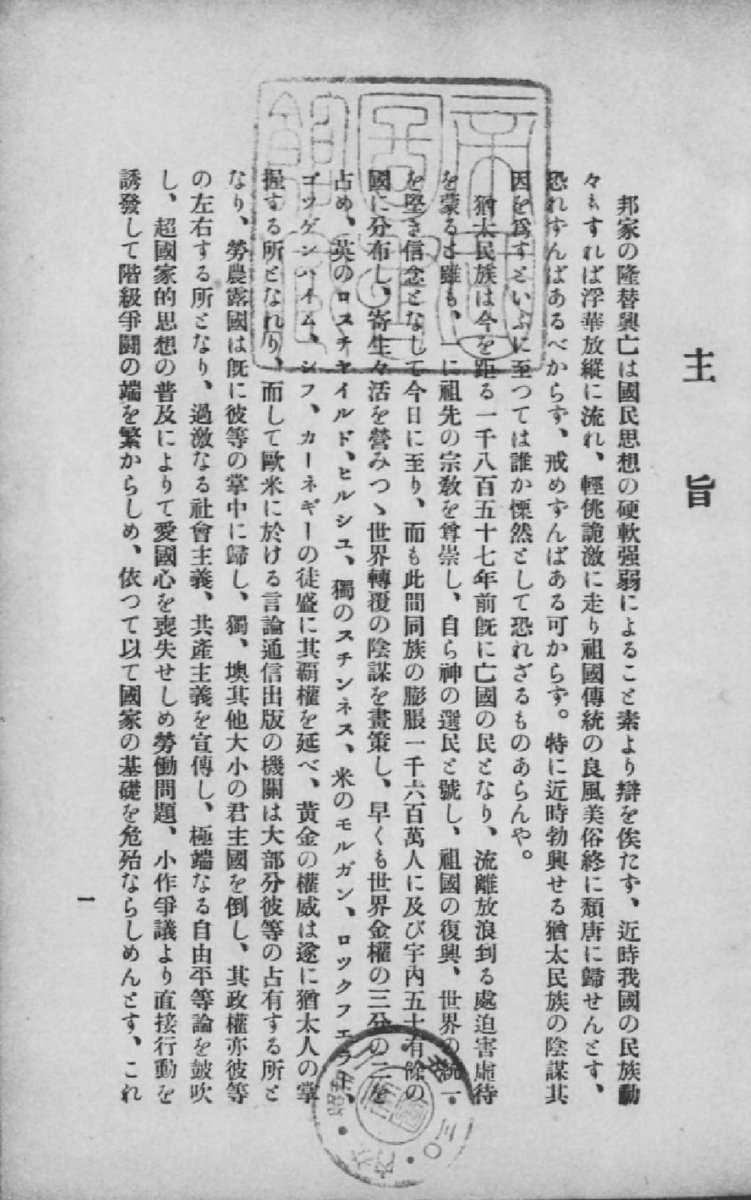 主旨
邦家の隆替興亡は國民思想の硬軟强弱によること素より辯を俟たず、近時我國の民族動
々もすれば浮華放縱に流れ、輕佻詭激に走り祖國傳統の良風美俗終に頽唐に歸せんとす、
恐れずんばあるべからず、戒めずんばある可からず。特に近時勃興せる猶太民族の陰謀其
因を爲すといふに至つては誰か慄然として恐れざるものあらんや。
猶太民族は今を距る一千八百五十七年前旣に亡國の民となり、流離放浪到る處迫害虐待
を蒙ると雖も、一に祖先の宗敎を尊崇し、自ら神の選民と號し、祖國の復興、世界の統一
を堅き信念となして今日に至り、而も此間同族の膨脹一千六百萬人に及び宇內五十有餘の
國に分布し、寄生々活を營みつゝ世界轉覆の陰謀を畫策し、早くも世界金權の三分の二を
占め、英のロスチヤイルド、ヒルシユ、獨のスチンネス、米のモルガン、ロックフエラー、
ゴツゲンハイム、シフ、カーネギーの徒盛に其覇權を延べ、黃金の權威は遂に猶太人の掌
握する所となれり、而して歐米に於ける言論通信出版の機關は大部分彼等の占有する所と
なり、勞農露國は旣に彼等の掌中に歸し、獨、墺其他大小の君主國を倒し、其政權亦彼等
の左右する所となり、過激なる社會主義、共產主義を宣傳し、極端なる自由平等論を鼓吹
し、超國家的思想の普及によりて愛國心を喪失せしめ勞働問題、小作爭議より直接行動を
誘發して階級爭鬪の端を繁からしめ、依つて以て國家の基礎を危殆ならしめんとす、これ
一